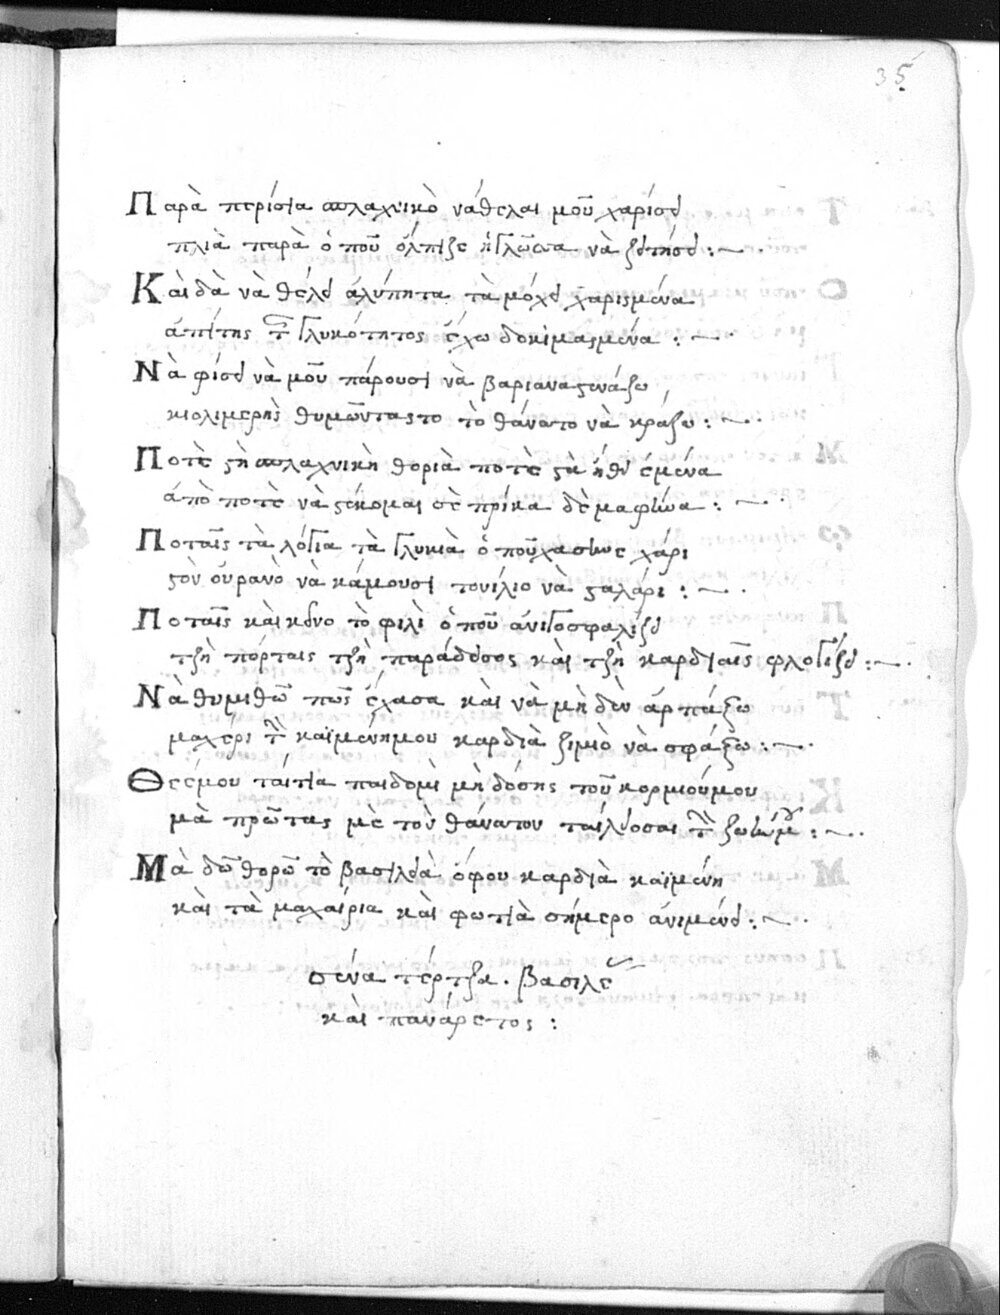 35
Παρὰ περίσια σπλαχνικὸ νάθελαι μοῦ χαρίσει
πλιὰ παρὰ ὁ ποῦ ὄλπιζε ἡ γλῶσσα νὰ ζητήσει :~
Καὶ δὰ νὰ θέλει ἀλύπητα τὰ μόχει χαρισμένα
ἀπίτης τῆς γλυκότητος ἔχω δοκιμασμένα :~
Νὰ φίσει νὰ μοῦ πάρουσι νὰ βαριαναστενάζω
κιολιμερὴς θυμῶντας το τὸ θάνατο νὰ κράζω :~
Ποτὲ στὴ σπλαχνικὴ θοριὰ ποτὲ στὰ ἤθη ἐμένα
ἀπὸ ποτὲ νὰ στέκομαι σὲ πρίκα δὲ μαφῖνα :~
Ποταῖς τὰ λόγια τὰ γλυκιὰ ὁ ποὔχασινε χάρι
στὸν οὐρανὸ νὰ κάμουσι τονίλιο νὰ σταλάρι :~
Ποταῖς καὶ κεῖνο τὸ φιλὶ ὁ ποῦ ἀνιγοσφαλίζει
τζὴ πόρταις τζὴ παράδεισος καὶ τζὴ καρδιαῖς φλογίζει :~
Νὰ θυμιθῶ πῶς ἔχασα καὶ νὰ μὴ δὲν ἁρπάξω
μαχέρι τὴν καϊμένημου καρδιὰ ζιμιὸ νὰ σφάξω :~
Θέεμου τέτια παιδομὶ μὴ δόσης τοῦ κορμιούμου
μὰ πρῶτας με τὸν θάνατον
Μὰ δῶ θορῶ τὸ βασιλειὰ ὄφου καρδιὰ καϊμένη
καὶ τὰ μαχαίρια καὶ φωτιὰ σήμερο ἀνιμένει :~
σένα τέρτζα . βασιλε
καὶ πανάρετος :